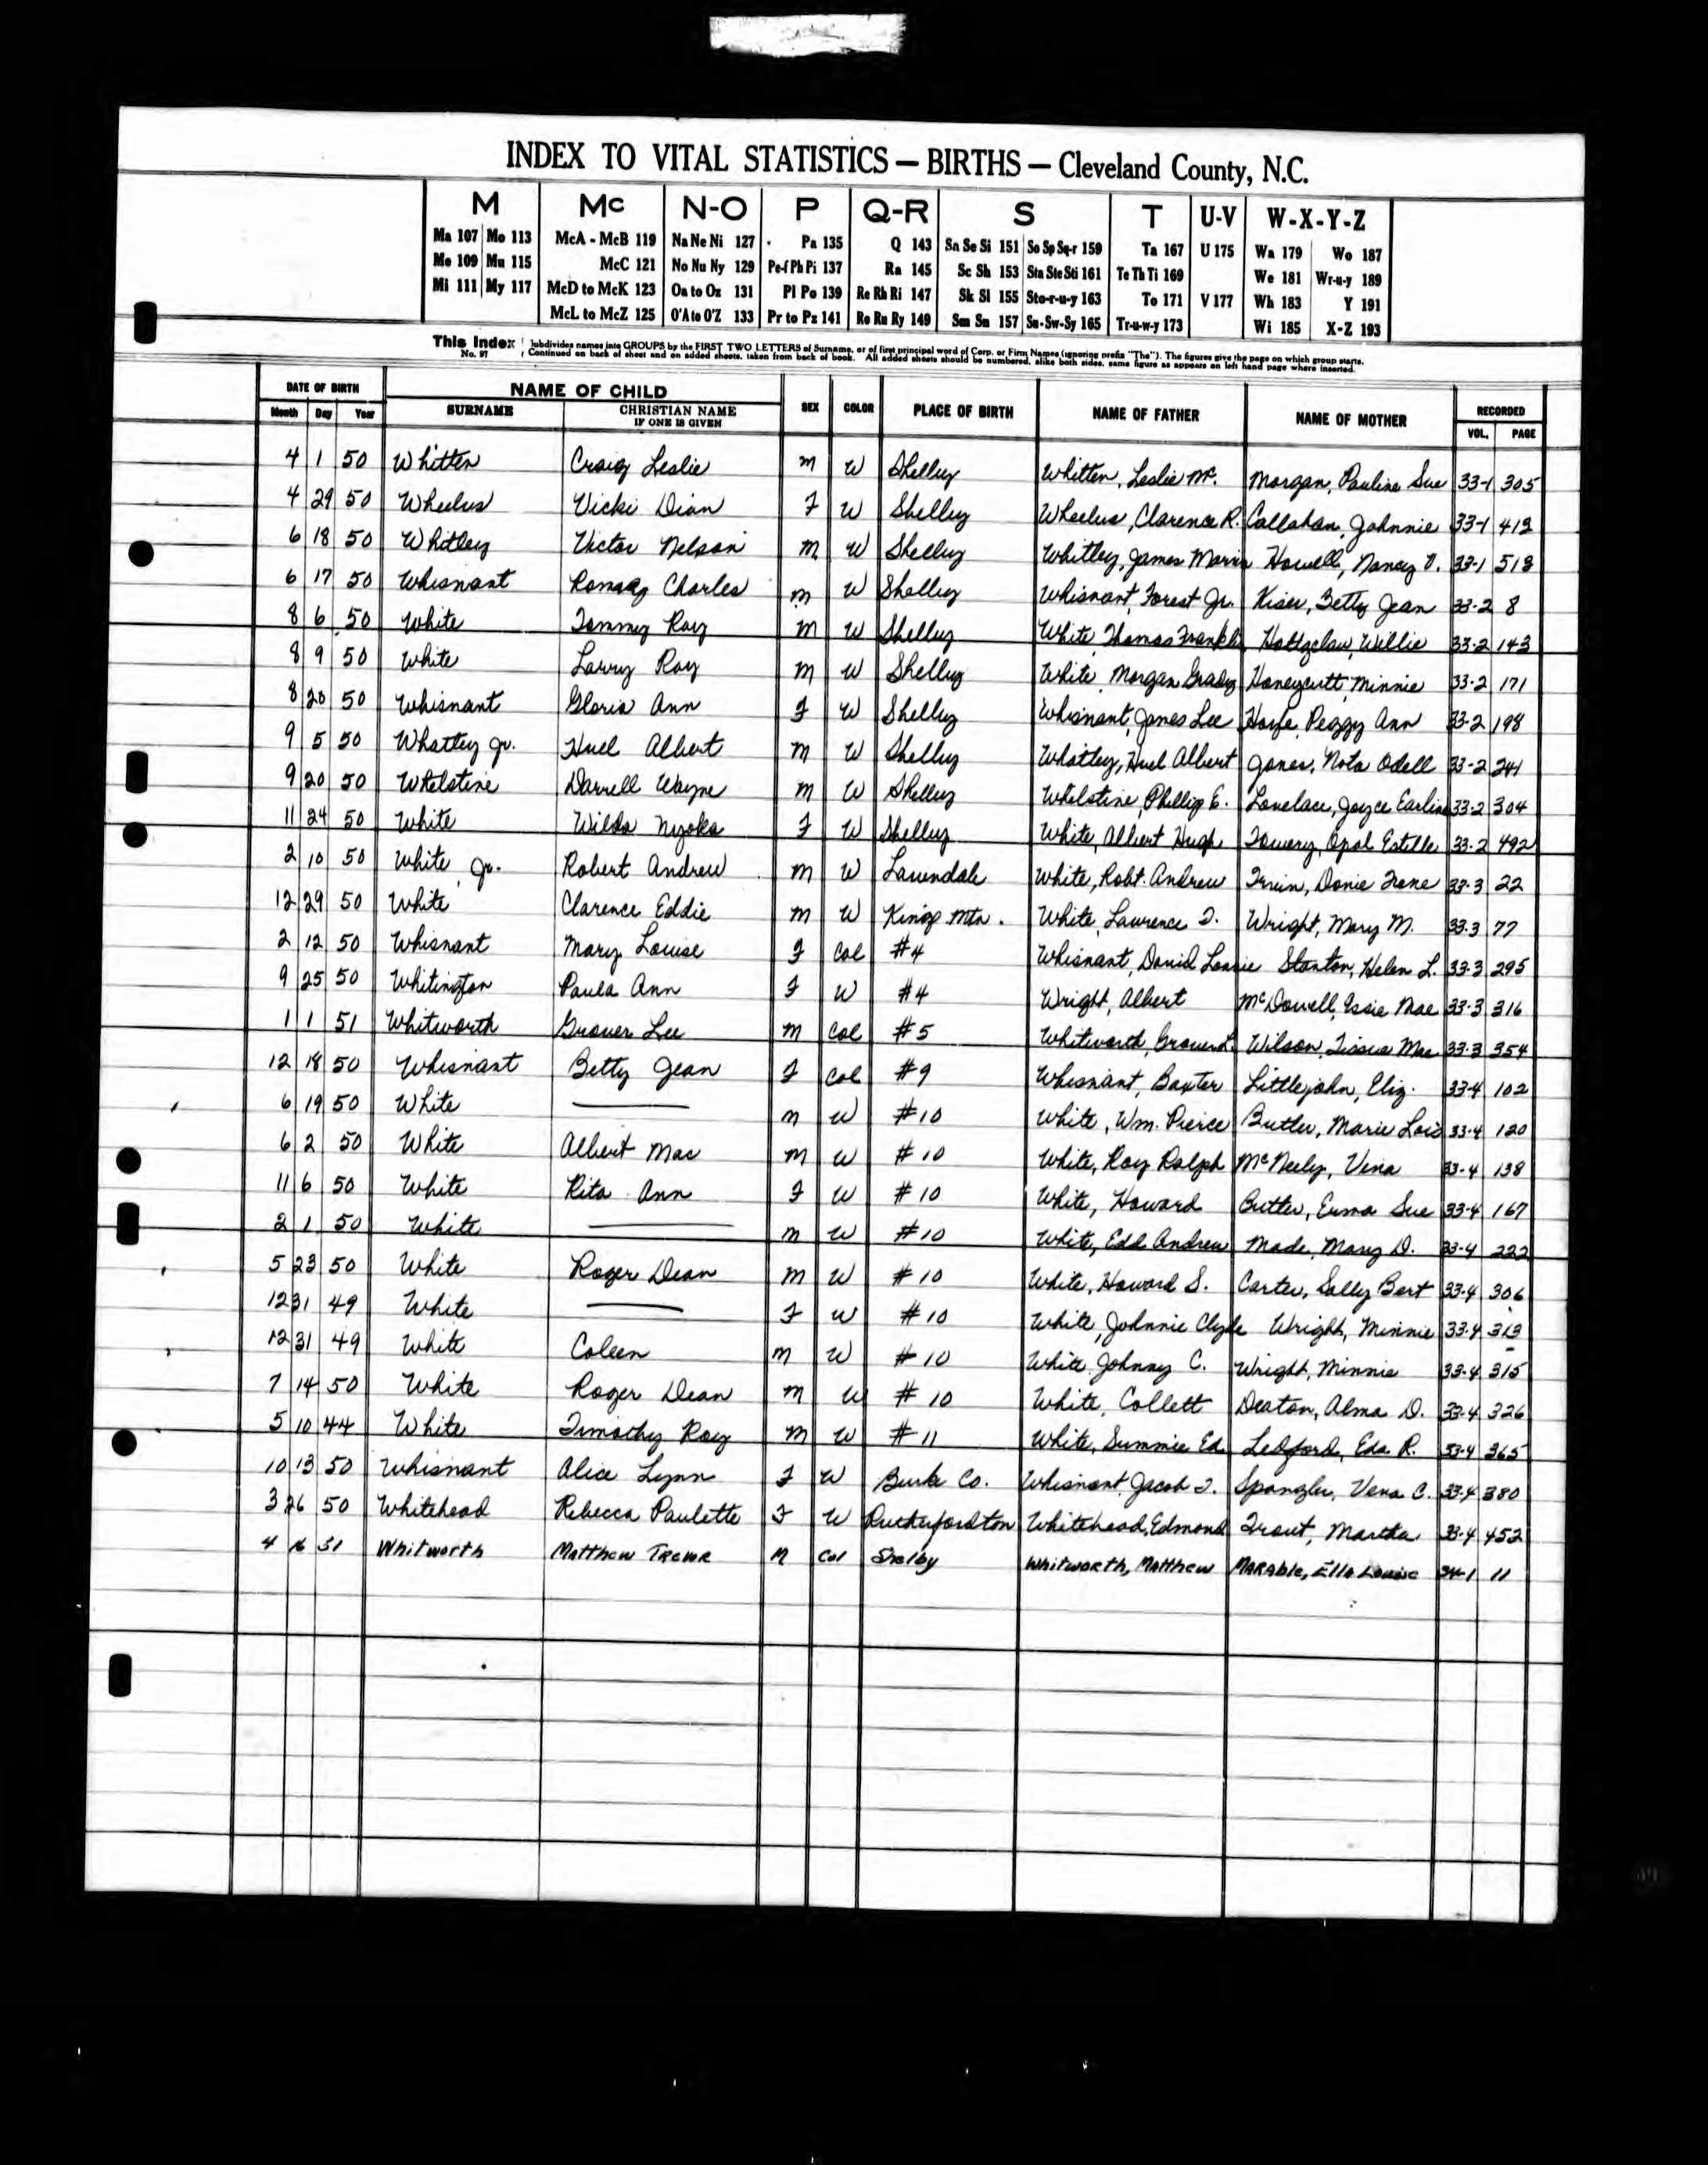 INDEX TO VITAL STATISTICS — BIRTHS — Cleveland County, N.C.
M Mc N-O P Q-R S T U-V W-X-Y-Z
Ma 107 Mo 113 McA - McB 119 Na Ne Ni 127 Pa 135 Q 143 Sa Se Si 151 So Sp Sq-r 159 Ta 167 U 175 Wa 179 Wo 187
Me 109 Mu 115 McC 121 No Nu Ny 129 Pe-f Ph Pi 137 Ra 145 Sc Sh 153 Sta Ste Sti 161 Te Th Ti 169 We 181 Wr-u-y 189
Mi 111 My 117 McD to McK 123 Oa to Oz 131 Pl Po 139 Re Rh Ri 147 Sk Sl 155 Sto-r-u-y 163 To 171 V 177 Wh 183 Y 191
McL to McZ 125 O'A to O'Z 133 Pr to Pz 141 Ro Ru Ry 149 Sm Sn 157 Su-Sw-Sy 165 Tr-u-w-y 173 Wi 185 X-Z 193
This Index subdivides names into GROUPS by the FIRST TWO LETTERS of Surname, or of first principal word of Corp. or Firm Names (ignoring prefix "The"). The figures give the page on which group starts.
No. 97 Continued on back of sheet and on added sheets, taken from back of book. All added sheets should be numbered, alike both sides, same figure as appears on left hand page where inserted.
DATE OF BIRTH NAME OF CHILD SEX COLOR PLACE OF BIRTH NAME OF FATHER NAME OF MOTHER RECORDED
Month Day Year SURNAME CHRISTIAN NAME IF ONE IS GIVEN VOL. PAGE
4 1 50 Whitten Craig Leslie M W Shelby Whitten, Leslie Mc. Morgan, Pauline Sue 33-1 305
4 29 50 Wheelus Vicki Dian F W Shelby Wheelus, Clarence R. Callahan, Johnnie 33-1 412
6 18 50 Whitley Victor Nelson M W Shelby Whitley, James Morris Howell, Nancy V. 33-1 513
6 17 50 Whisnant Charles M W Shelby Whisnant, Forest Jr. Kiser, Betty Jean 33-2 8
8 6 50 White Tommy Ray M W Shelby White, Thomas Franklin Holtzclaw, Willie 33-2 143
8 9 50 White Larry Ray M W Shelby White, Morgan Grady Honeycutt, Minnie 33-2 171
8 20 50 Whisnant Gloria Ann F W Shelby Whisnant, James Lee Hoyle, Peggy Ann 33-2 198
9 5 50 Whatley Jr. Huel Albert M W Shelby Whatley, Huel Albert Jones, Nota Odell 33-2 241
9 20 50 Whelstine Darrell Wayne M W Shelby Whelstine, Phillip E. Lovelace, Joyce Earline 33-2 304
11 24 50 White Wilda Nyoka F W Shelby White, Albert Hugh Towery, Opal Estelle 33-2 492
2 10 50 White Jr. Robert Andrew M W Lawndale White, Robt. Andrew Irvin, Donie Irene 33-3 22
12 29 50 White Clarence Eddie M W Kings Mtn. White, Lawrence T. Wright, Mary M. 33-3 77
2 12 50 Whisnant Mary Louise F Col #4 Whisnant, David Lonnie Stanton, Helen L. 33-3 295
9 25 50 Whitington Paula Ann F W #4 Wright, Albert McDowell, Essie Mae 33-3 316
1 1 51 Whitworth Grover Lee M Col #5 Whitworth, Grover L. Wilson, Tissie Mae 33-3 354
12 18 50 Whisnant Betty Jean F Col #9 Whisnant, Baxter Littlejohn, Eliz. 33-4 102
6 19 50 White — M W #10 White, Wm. Pierce Butler, Marie Lois 33-4 120
6 2 50 White Albert Mac M W #10 White, Roy Ralph McNeely, Vena 33-4 138
11 6 50 White Rita Ann F W #10 White, Howard Butler, Erma Sue 33-4 167
2 1 50 White — M W #10 White, Edd Andrew Mode, Mary D. 33-4 222
5 23 50 White Roger Dean M W #10 White, Howard S. Carter, Sally Bert 33-4 306
12 31 49 White — F W #10 White, Johnnie Clyde Wright, Minnie 33-4 313
12 31 49 White Coleen M W #10 White Johnny C. Wright, Minnie 33-4 315
7 14 50 White Roger Dean M W #10 White, Collett Deaton, Alma D. 33-4 326
5 10 44 White Timothy Ray M W #11 White, Summie Ed Ledford, Eda R. 33-4 365
10 13 50 Whisnant Alice Lynn F W Burke Co. Whisnant, Jacob T. Spangler, Vera C. 33-4 380
3 26 50 Whitehead Rebecca Paulette F W Rutherfordton Whitehead, Edmond Trout, Martha 33-4 452
4 16 51 Whitworth Matthew Trevor M Col Shelby Whitworth, Matthew Marable, Ella Louise 34-1 11